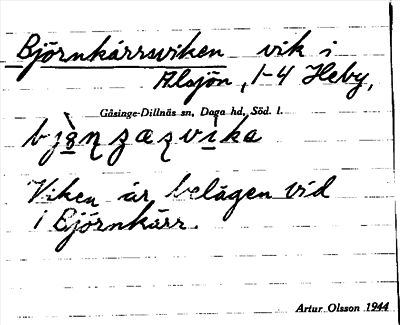 Björnkärrsviken vik i
Alsjön, 1-4 Heby,
Gåsinge-Dillnäs sn, Daga hd, Söd. l.
Viken är belägen vid
1 Björnkärr.
Artur Olsson 1944